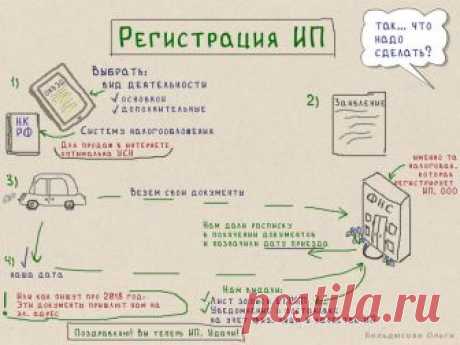 Регистрация ИП
Так... что
надо
сделать?
1)
ОКВЭД
Выбрать:
вид деятельности
✓ основной
✓ дополнительные
НК
РФ
Систему налогообложения
Для продаж в интернете
оптимальна УСН
2)
Заявление
3)
Везем свои документы
именно та
налоговая,
которая
регистрирует
ИП, ООО
ФНС
Нам дали расписку
в получении документов
и назначили дату приезда
4)
наша дата
! Или как пишут про 2018 год:
Эти документы пришлют вам на
эл. адрес
Нам выдали:
✓ Лист записи
✓ Уведомление о постановке
на учет
Поздравляю! Вы теперь ИП. Удачи!
Бельдюсова Ольга
postila.ru